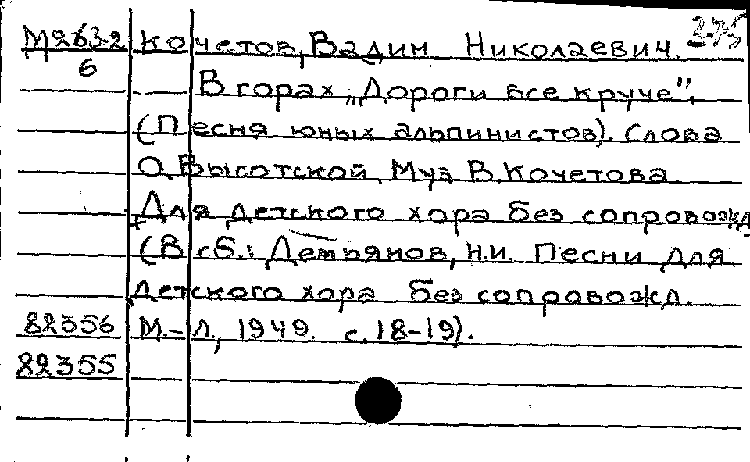 М263-2 Кочетов, Вадим Николаевич. 3-75
6
В горах „Дороги все круче".
(Песня юных альпинистов). Слова
О.Высотской Муз В.Кочетова
Для детского хора без сопровожд
(В сб.: Демьянов, Н.И. Песни для
детского хора без сопровожд.
82356 М.-Л., 1949. с.18-19).
82355